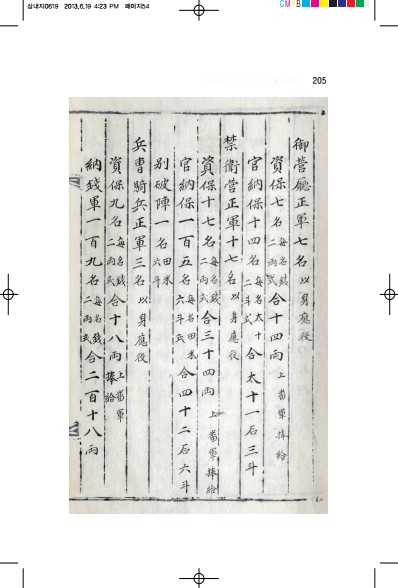 삼내지0619 2013.6.19 4:23 PM 페이지54
CM
205
御營廳正軍七名以身應役
資保七名每名錢二兩式合十四兩上番軍捧給
官納保十四名每名太十二斗式合太十一石三斗
禁衛營正軍十七名以身應役
資保十七名每名錢二兩式合三十四兩上番軍捧給
官納保一百五名每名田米六斗式合四十二石六斗
別破陣一名田米六斗
兵曹騎兵正軍三名以身應役
資保九名每名錢二兩式合十八兩上番軍捧給
納錢軍一百九名每名錢二兩式合二百十八兩